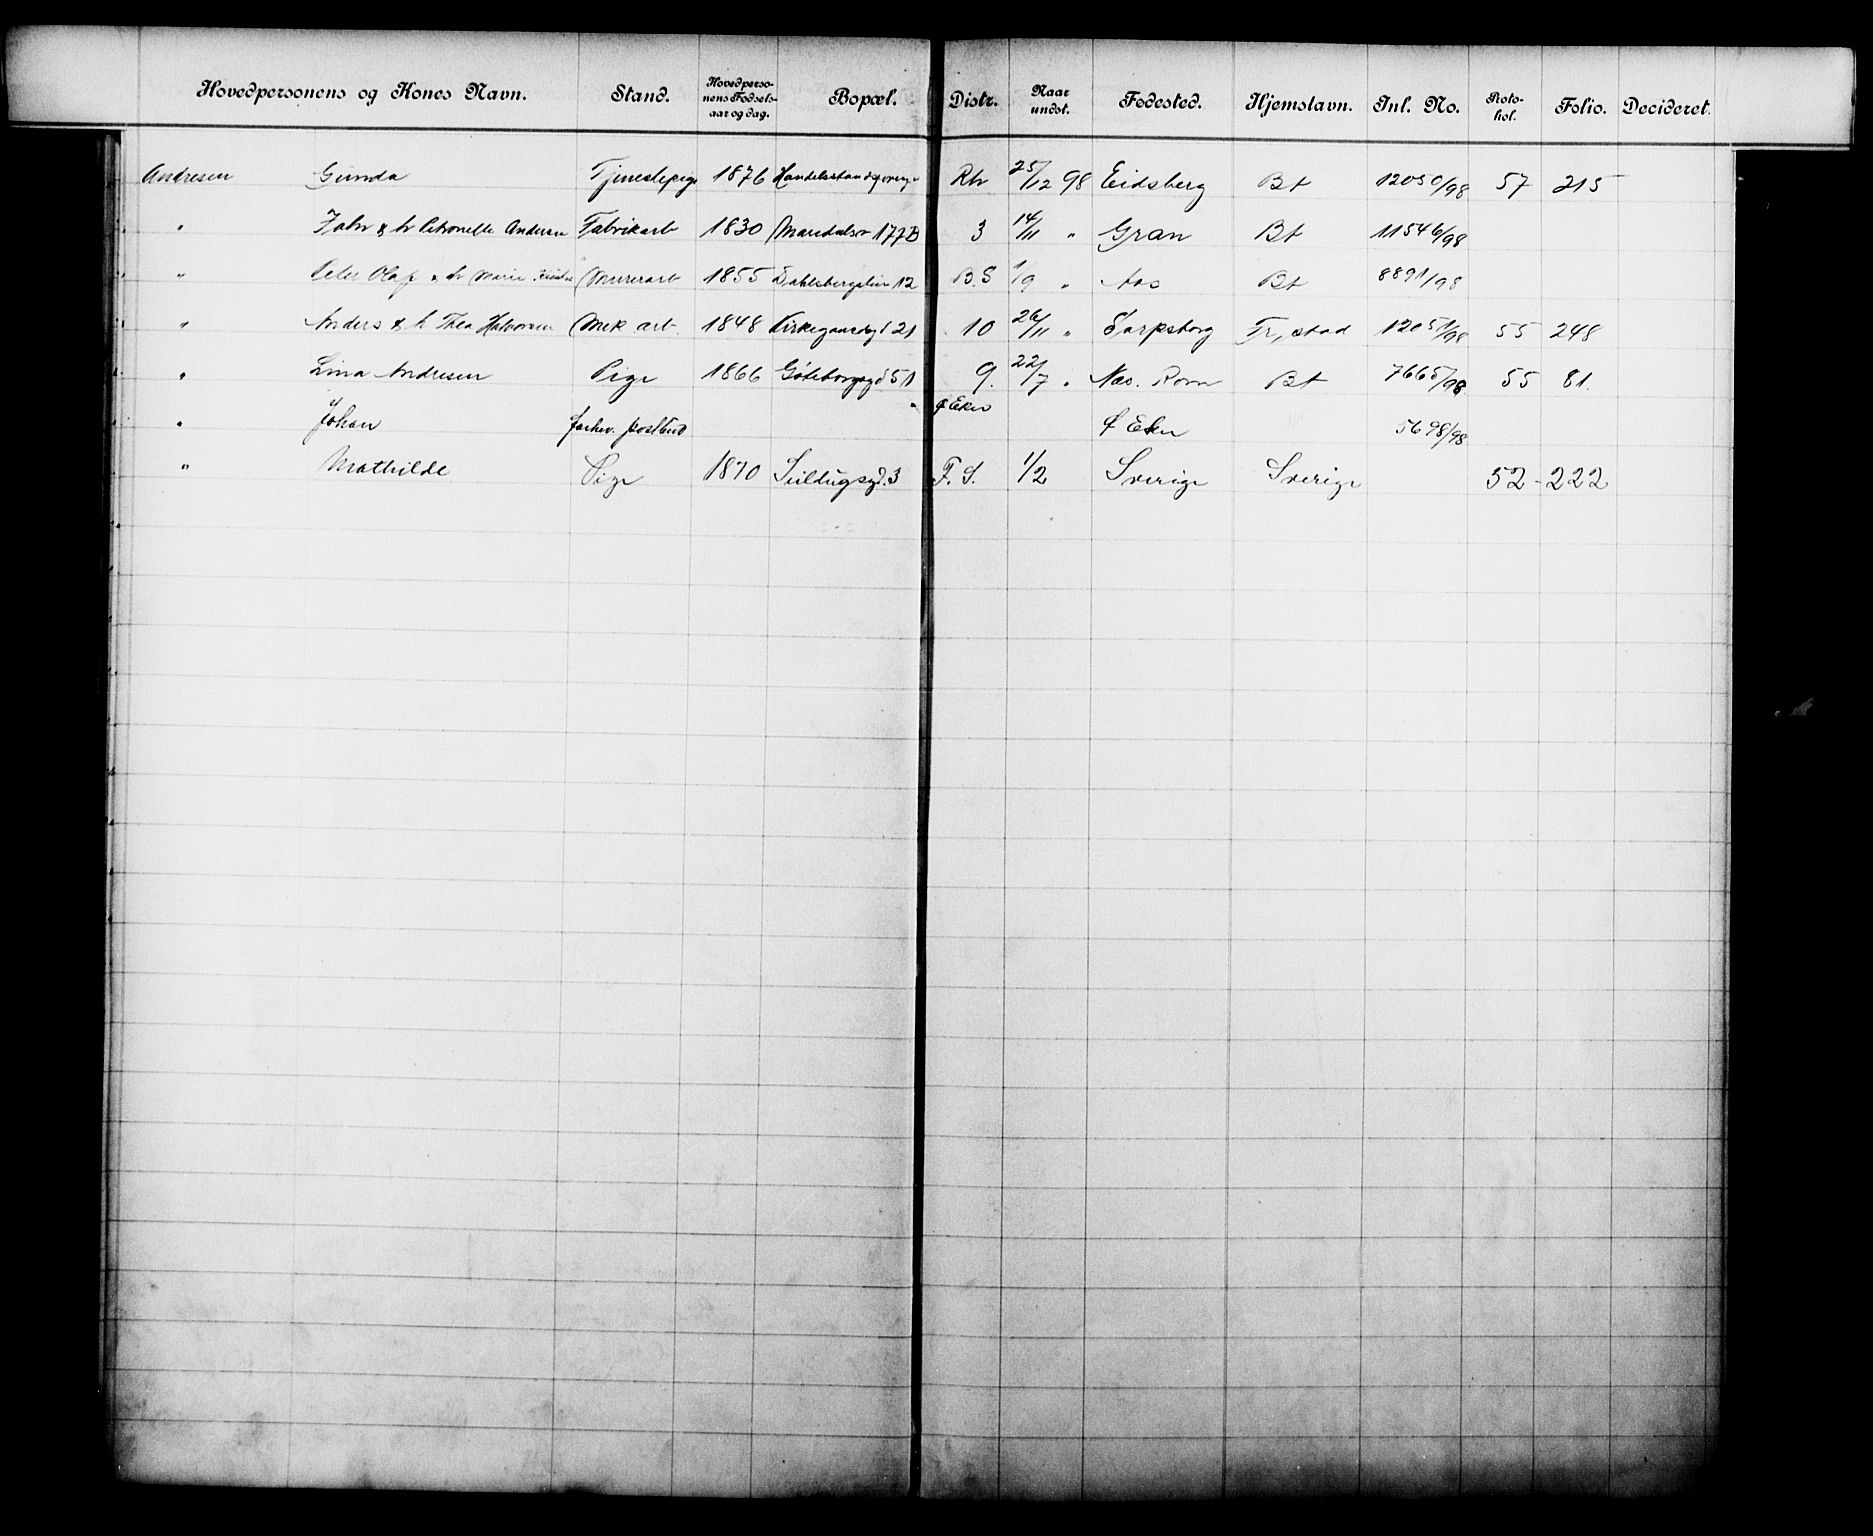 Hovedpersonens og Kones Navn. Stand. Hovedpersonens Fødselsaar og dag. Bopæl. Distr. Naar undst. Fødested. Hjemstavn. Inl. No. Protokol. Folio. Decideret.
Andresen Gunda Tjenestepige 1876 Rh 25/12 98 Eidsberg Bt 12050/98 57 215
" John & h Petronelle Andersen Fabrikarb 1830 Maridalsv 177B 3 14/11 " Gran Bt 11546/98
" Peter Olaf & h Marie Murerarb 1855 Dahlsbergstien 12 B.S 1/9 " Aas Bt 8891/98
" Anders & h Thea Halvorsen Mek arb. 1848 Kirkegaardsgd 21 10 26/11 " Sarpsborg Fr,stad 12051/98 55 248
" Lina Andresen Pige 1866 Göteborggd 51 9. 22/7 " Næs. Rom Bt 7665/98 55 81.
" Johan forhv. postbud " Ø Eker Ø Eker 5698/98
" Mathilde Pige 1870 Seildugsgd. 3 F. S. 1/2 Sverige Sverige 52 - 222